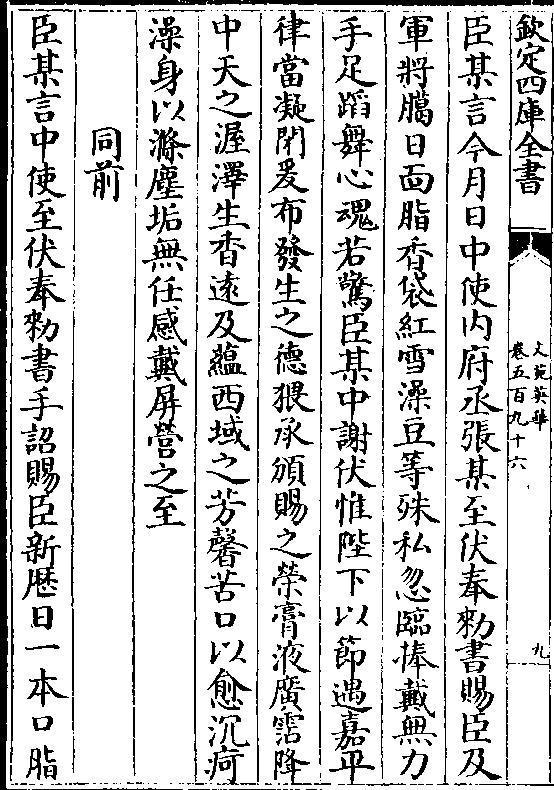 欽定四庫全書
文苑英華
卷五百九十六
九
臣某言今月日中使内府丞張某至伏奉勑書賜臣及
軍將臈日面脂香袋紅雪澡豆等殊私忽臨捧戴無力
手足蹈舞心魂若驚臣某中謝伏惟陛下以節遇嘉平
律當凝閉爰布發生之德猥承頒賜之榮膏液廣霑降
中天之渥澤生香逺及蘊西域之芳馨苦口以愈沉疴
澡身以滌塵垢無任感戴屏營之至
同前
臣某言中使至伏奉勑書手詔賜臣新厯日一本口脂